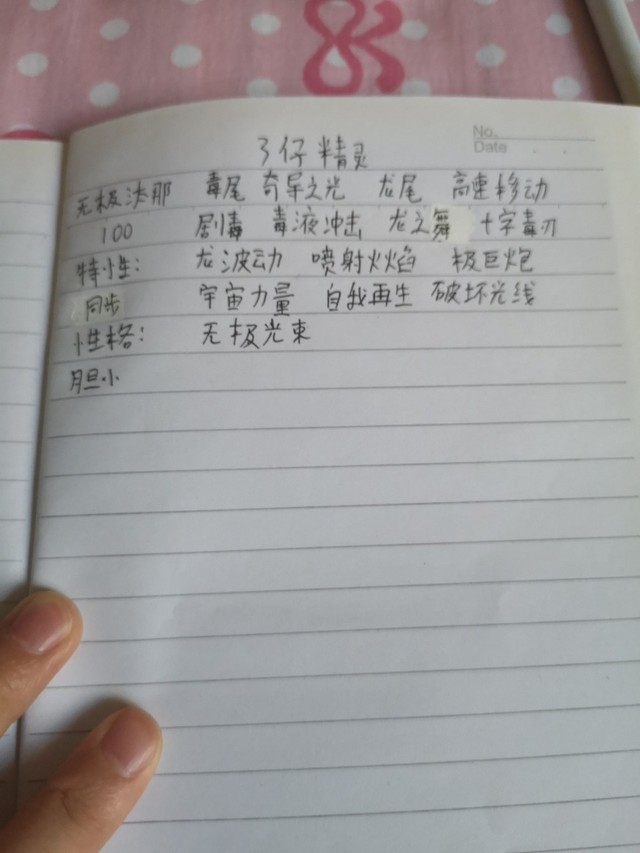 No.
Date
3仔精灵
无极汰那 毒尾 奇异之光 龙尾 高速移动
100 剧毒 毒液冲击 龙之舞 十字毒刃
特性: 龙波动 喷射火焰 极巨炮
同步 宇宙力量 自我再生 破坏光线
性格: 无极光束
胆小